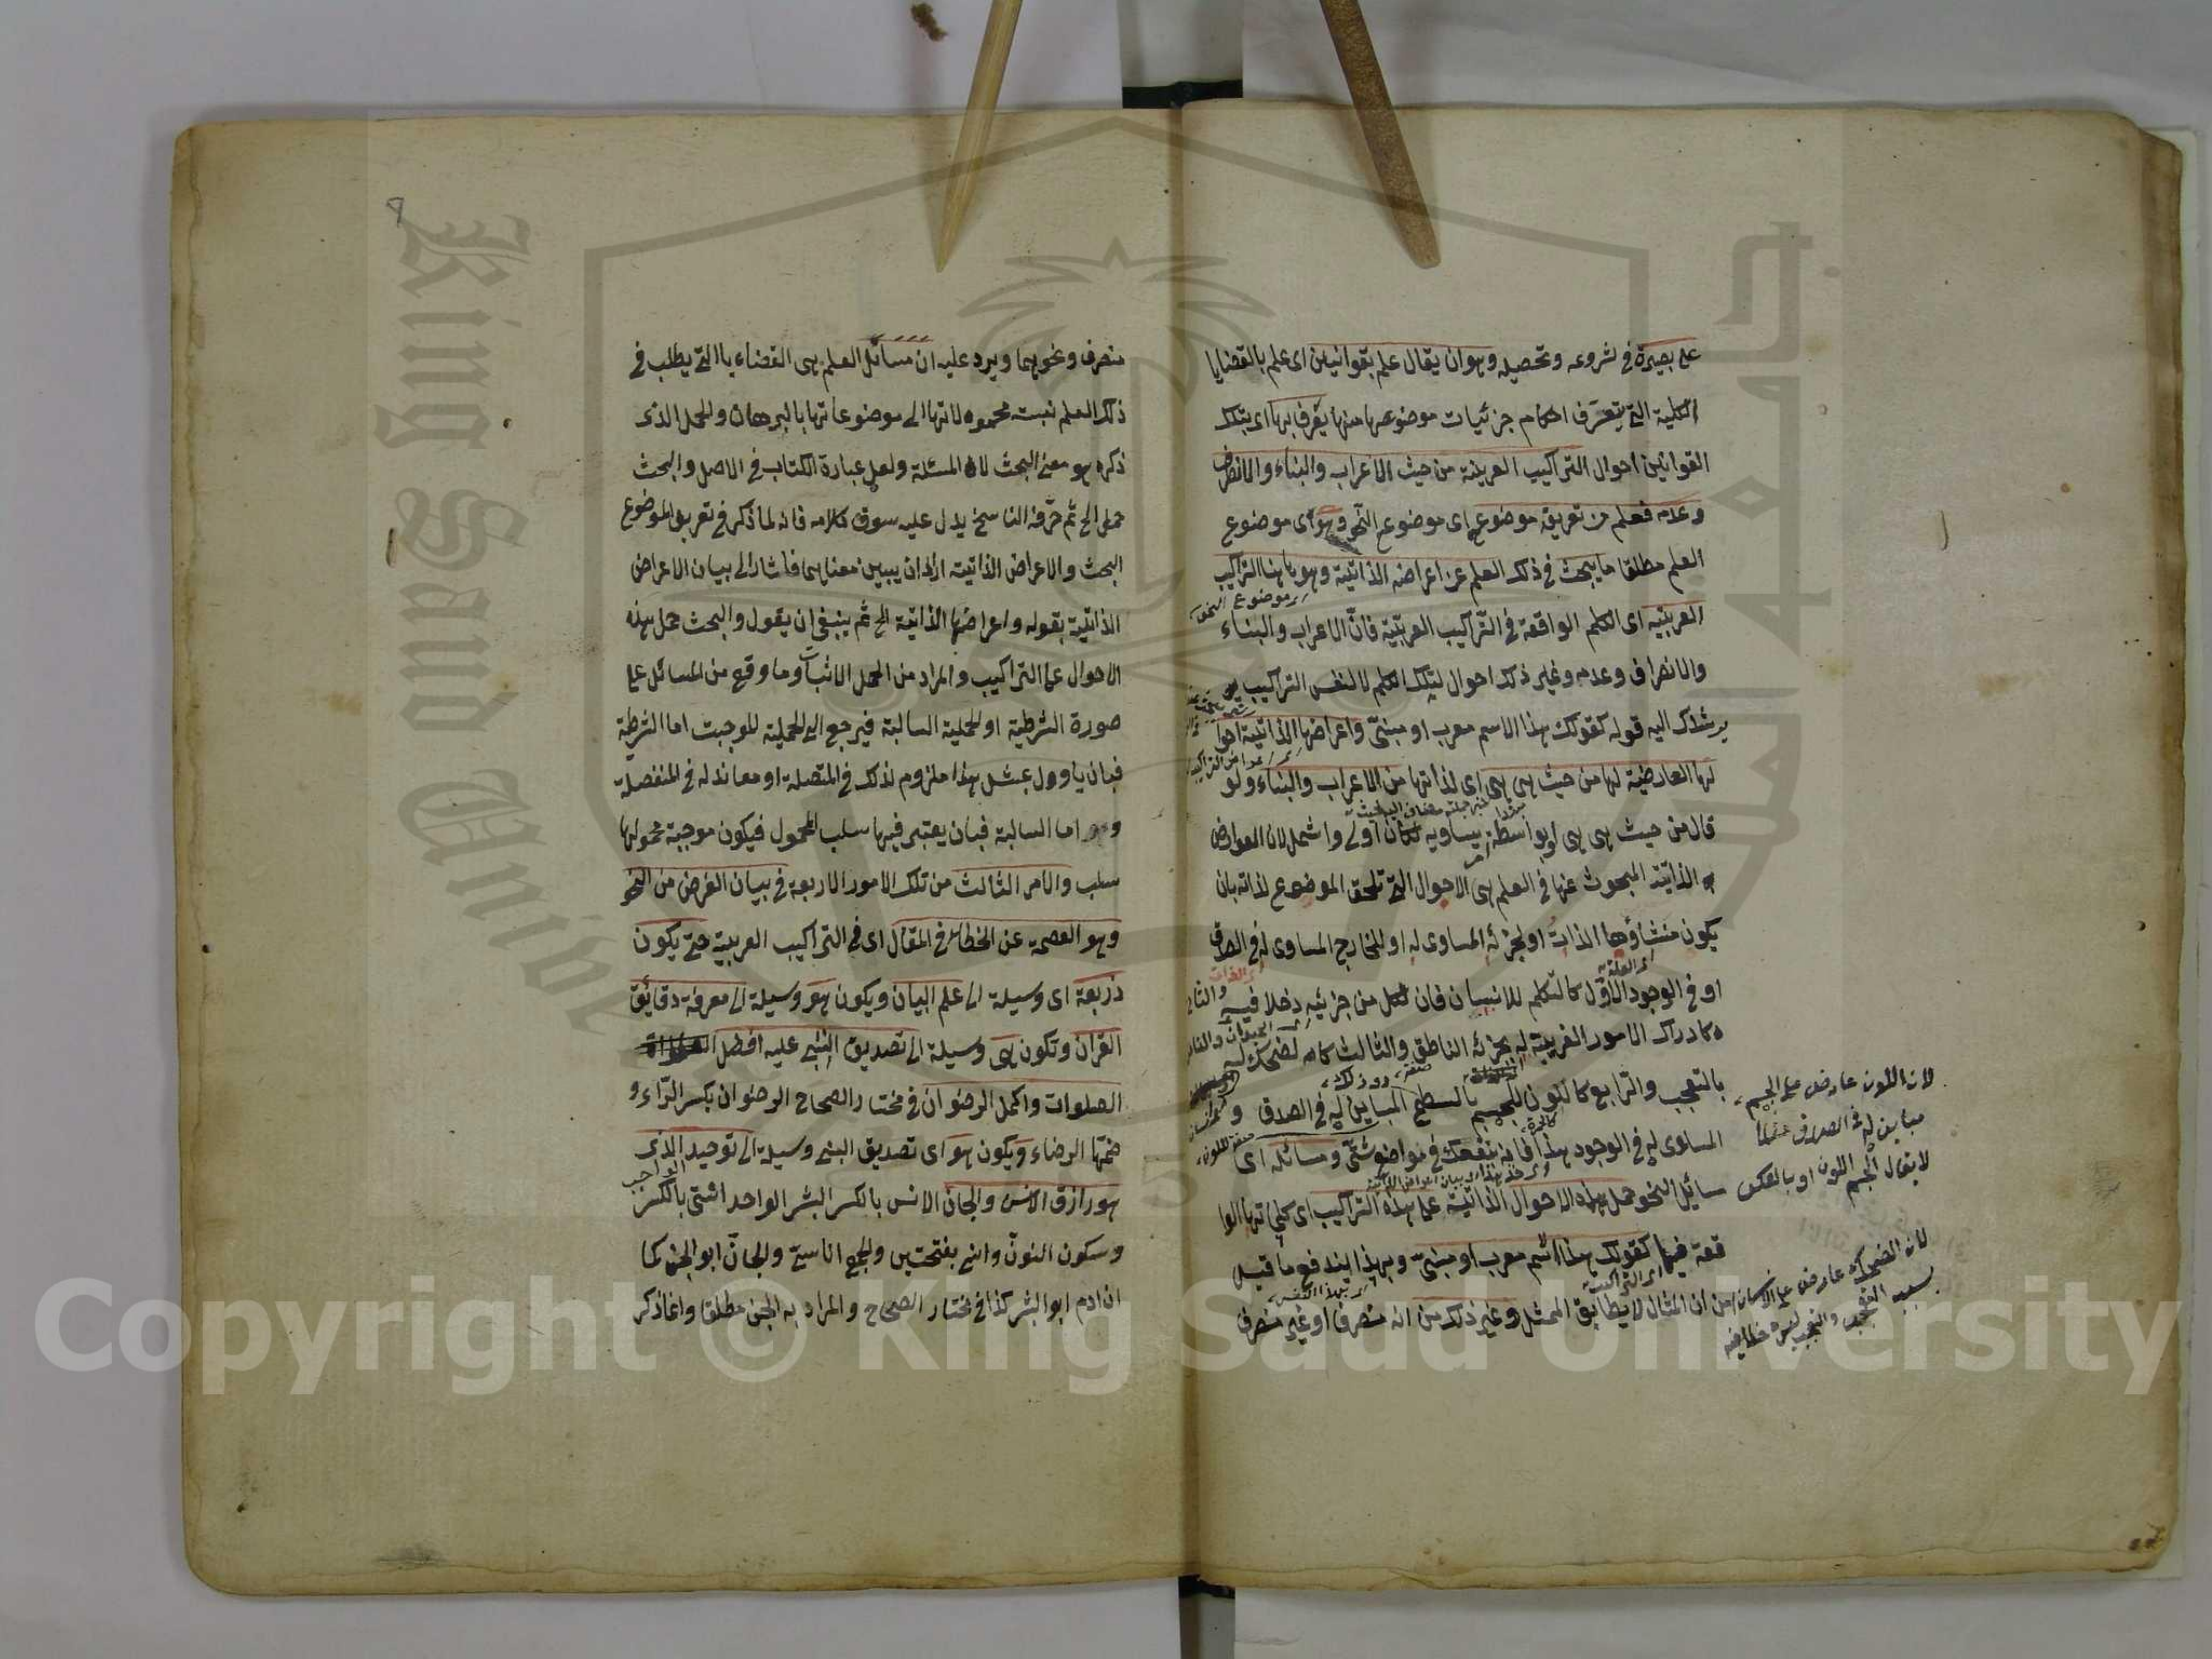 على بصيرة في شروعه وتحصيله وهو ان يقال علم بقوانين اى علم بالقضايا
الكلية التي يتعرف احكام جزئيات موضوعها منها يعرف بها اى بتلك
القوانين احوال التراكيب العربية من حيث الاعراب والبناء والانصراف
وعدمه فعلم من تعريفه موضوعه اى موضوع النحو وهو اى موضوع
العلم مطلقا ما يبحث في ذلك العلم عن اعراضه الذاتية وهو ههنا التراكيب
اى موضوع النحو
العربية اى الكلم الواقعة في التراكيب العربية فان الاعراب والبناء
والانصراف وعدمه وغير ذلك احوال لتلك الكلم لا لنفس التراكيب
يرشدك اليه قوله كقولك هذا الاسم معرب او مبنى واعراضها الذاتية احوا
لها العارضية لها من حيث هي هي اى لذاتها من الاعراب والبناء ولو
قال من حيث هي هي او بواسطة يساويه لكان اولى واشمل لان العوارض
الذاتية المبحوث عنها في العلم هي الاحوال التي تلحق الموضوع لذاته بان
يكون منشاؤها الذات او لجزئه المساوى له او للخارج المساوى له في الصدق
او في الوجود الاول كالتكلم للانسان فان لكل من جزئيه دخلا فيه والثانى
كادراك الامور الغريبة له بجزئه الناطق والثالث كالضحك له
بالتعجب والرابع كاللون للجسم بالسطح المباين له في الصدق و
المساوى له في الوجود هذا فانه ينفعك في مواضع شتى ومسائله اى
مسائل النحو حمل هذه الاحوال الذاتية على هذه التراكيب اى كلماتها الوا
قعة فيها كقولك هذا اسم معرب او مبنى وبهذا يندفع ما قيل
اى التراكيب
من ان المثال لا يطابق الممثل وغير ذلك من انه منصرف او غير منصرف
لان اللون عارض على الجسم
مباين له في الصدق مثلا
لا يقال الجسم اللون او بالعكس
لان الضحك عارض على الانسان
بسبب التعجب والتعجب ليس
منصرف ونحوهما ويرد عليه ان مسائل العلم هي القضاء يا التي يطلب في
ذلك العلم نسبت محمولاتها الى موضوعاتها بالبرهان والحمل الذى
ذكره هو معنى البحث لا المسئلة ولعل عبارة الكتاب في الاصل والبحث
حمل الخ ثم حرفه الناسخ يدل عليه سوق كلامه فانه لما ذكر في تعريف الموضوع
البحث والاعراض الذاتية اراد ان يبين معناهما فاشار الى بيان الاعراض
الذاتية بقوله واعراضها الذاتية الخ ثم ينبغى ان يقول والبحث حمل هذه
الاحوال على التراكيب والمراد من الحمل الاثبات وما وقع من المسائل على
صورة الشرطية او الحملية السالبة فيرجع الى الحملية الموجبة اما الشرطية
فبان ياوول بمثل هذا ملزوم لذلك في المتصلة او معاند له في المنفصلة
واما السالبة فبان يعتبر فيها سلب المحمول فيكون موجبة محمولها
سلب والامر الثالث من تلك الامور الاربعة في بيان الغرض من النحو
وهو العصمة عن الخطاء في المقال اى في التراكيب العربية حتى يكون
ذريعة اى وسيلة الى علم البيان ويكون هو وسيلة الى معرفة دقايق
القران وتكون هي وسيلة الى تصديق النبى عليه افضل
الصلوات واكمل الرضوان في مختار الصحاح الرضوان بكسر الراء و
ضمها الرضاء ويكون هو اى تصديق النبى وسيلة الى توحيد الذى
الواجب
هو رازق الانس والجان الانس بالكسر البشر الواحد انسى بالكسر
وسكون النون وانسى بفتحتين والجمع اناسى والجان ابو الجن كما
ان ادم ابو البشر كذا في مختار الصحاح والمراد به الجن مطلقا وانما ذكر
King Saud Unive
Copyright © King Saud University